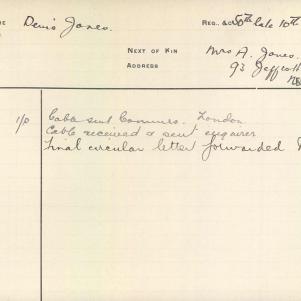 Denis Jones.
REG. &C 50th late 10th
NEXT OF KIN Mrs A. Jones.
ADDRESS 93 Jeffcott
1/0 Cable sent Commrs. London
Cable received & sent enquirer
Final circular letter forwarded